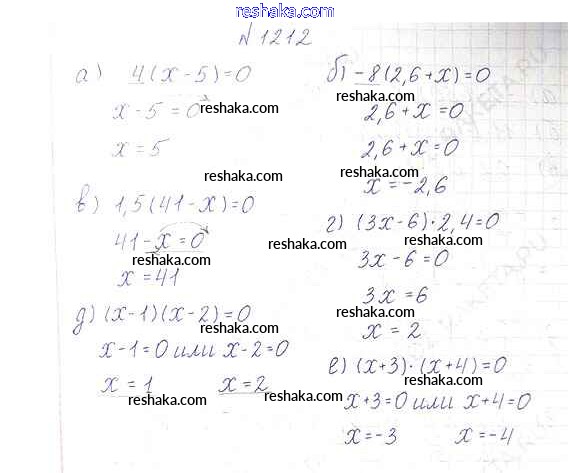 www.reshaka.com
№1212
а) 4(x-5)=0
x-5=0
x=5
reshaka.com
reshaka.com
б) -8(2,6+x)=0
reshaka.com
2,6+x=0
2,6+x=0
reshaka.com
x=-2,6
в) 1,5(41-x)=0
41-x=0
reshaka.com
x=41
г) (3x-6)·2,4=0
reshaka.com
3x-6=0
3x=6
reshaka.com
x=2
д) (x-1)(x-2)=0
reshaka.com
x-1=0 или x-2=0
x=1 x=2
reshaka.com
е) (x+3)·(x+4)=0
reshaka.com
x+3=0 или x+4=0
reshaka.com
x=-3 x=-4